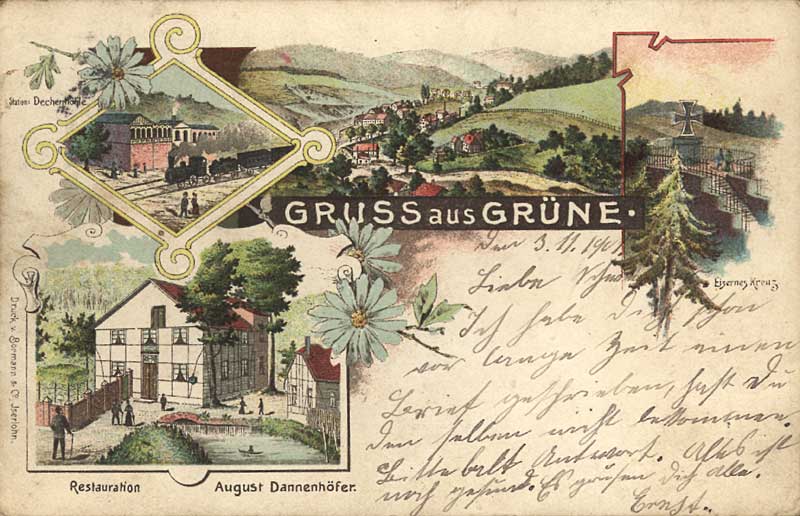 Station Dechenhöhle
GRUSS aus GRÜNE.
Eisernes Kreuz
Den 3. 11. 190
Liebe
Ich habe Dich schon
vor lange Zeit einen
Brief geschrieben, hast Du
den selben nicht bekommen.
Bitte balt Antwort. Alles ist
noch gesund. Es grüsen Dich Alle.
Ernst.
Druck v. Bormann & Co, Iserlohn.
Restauration
August Dannenhöfer.